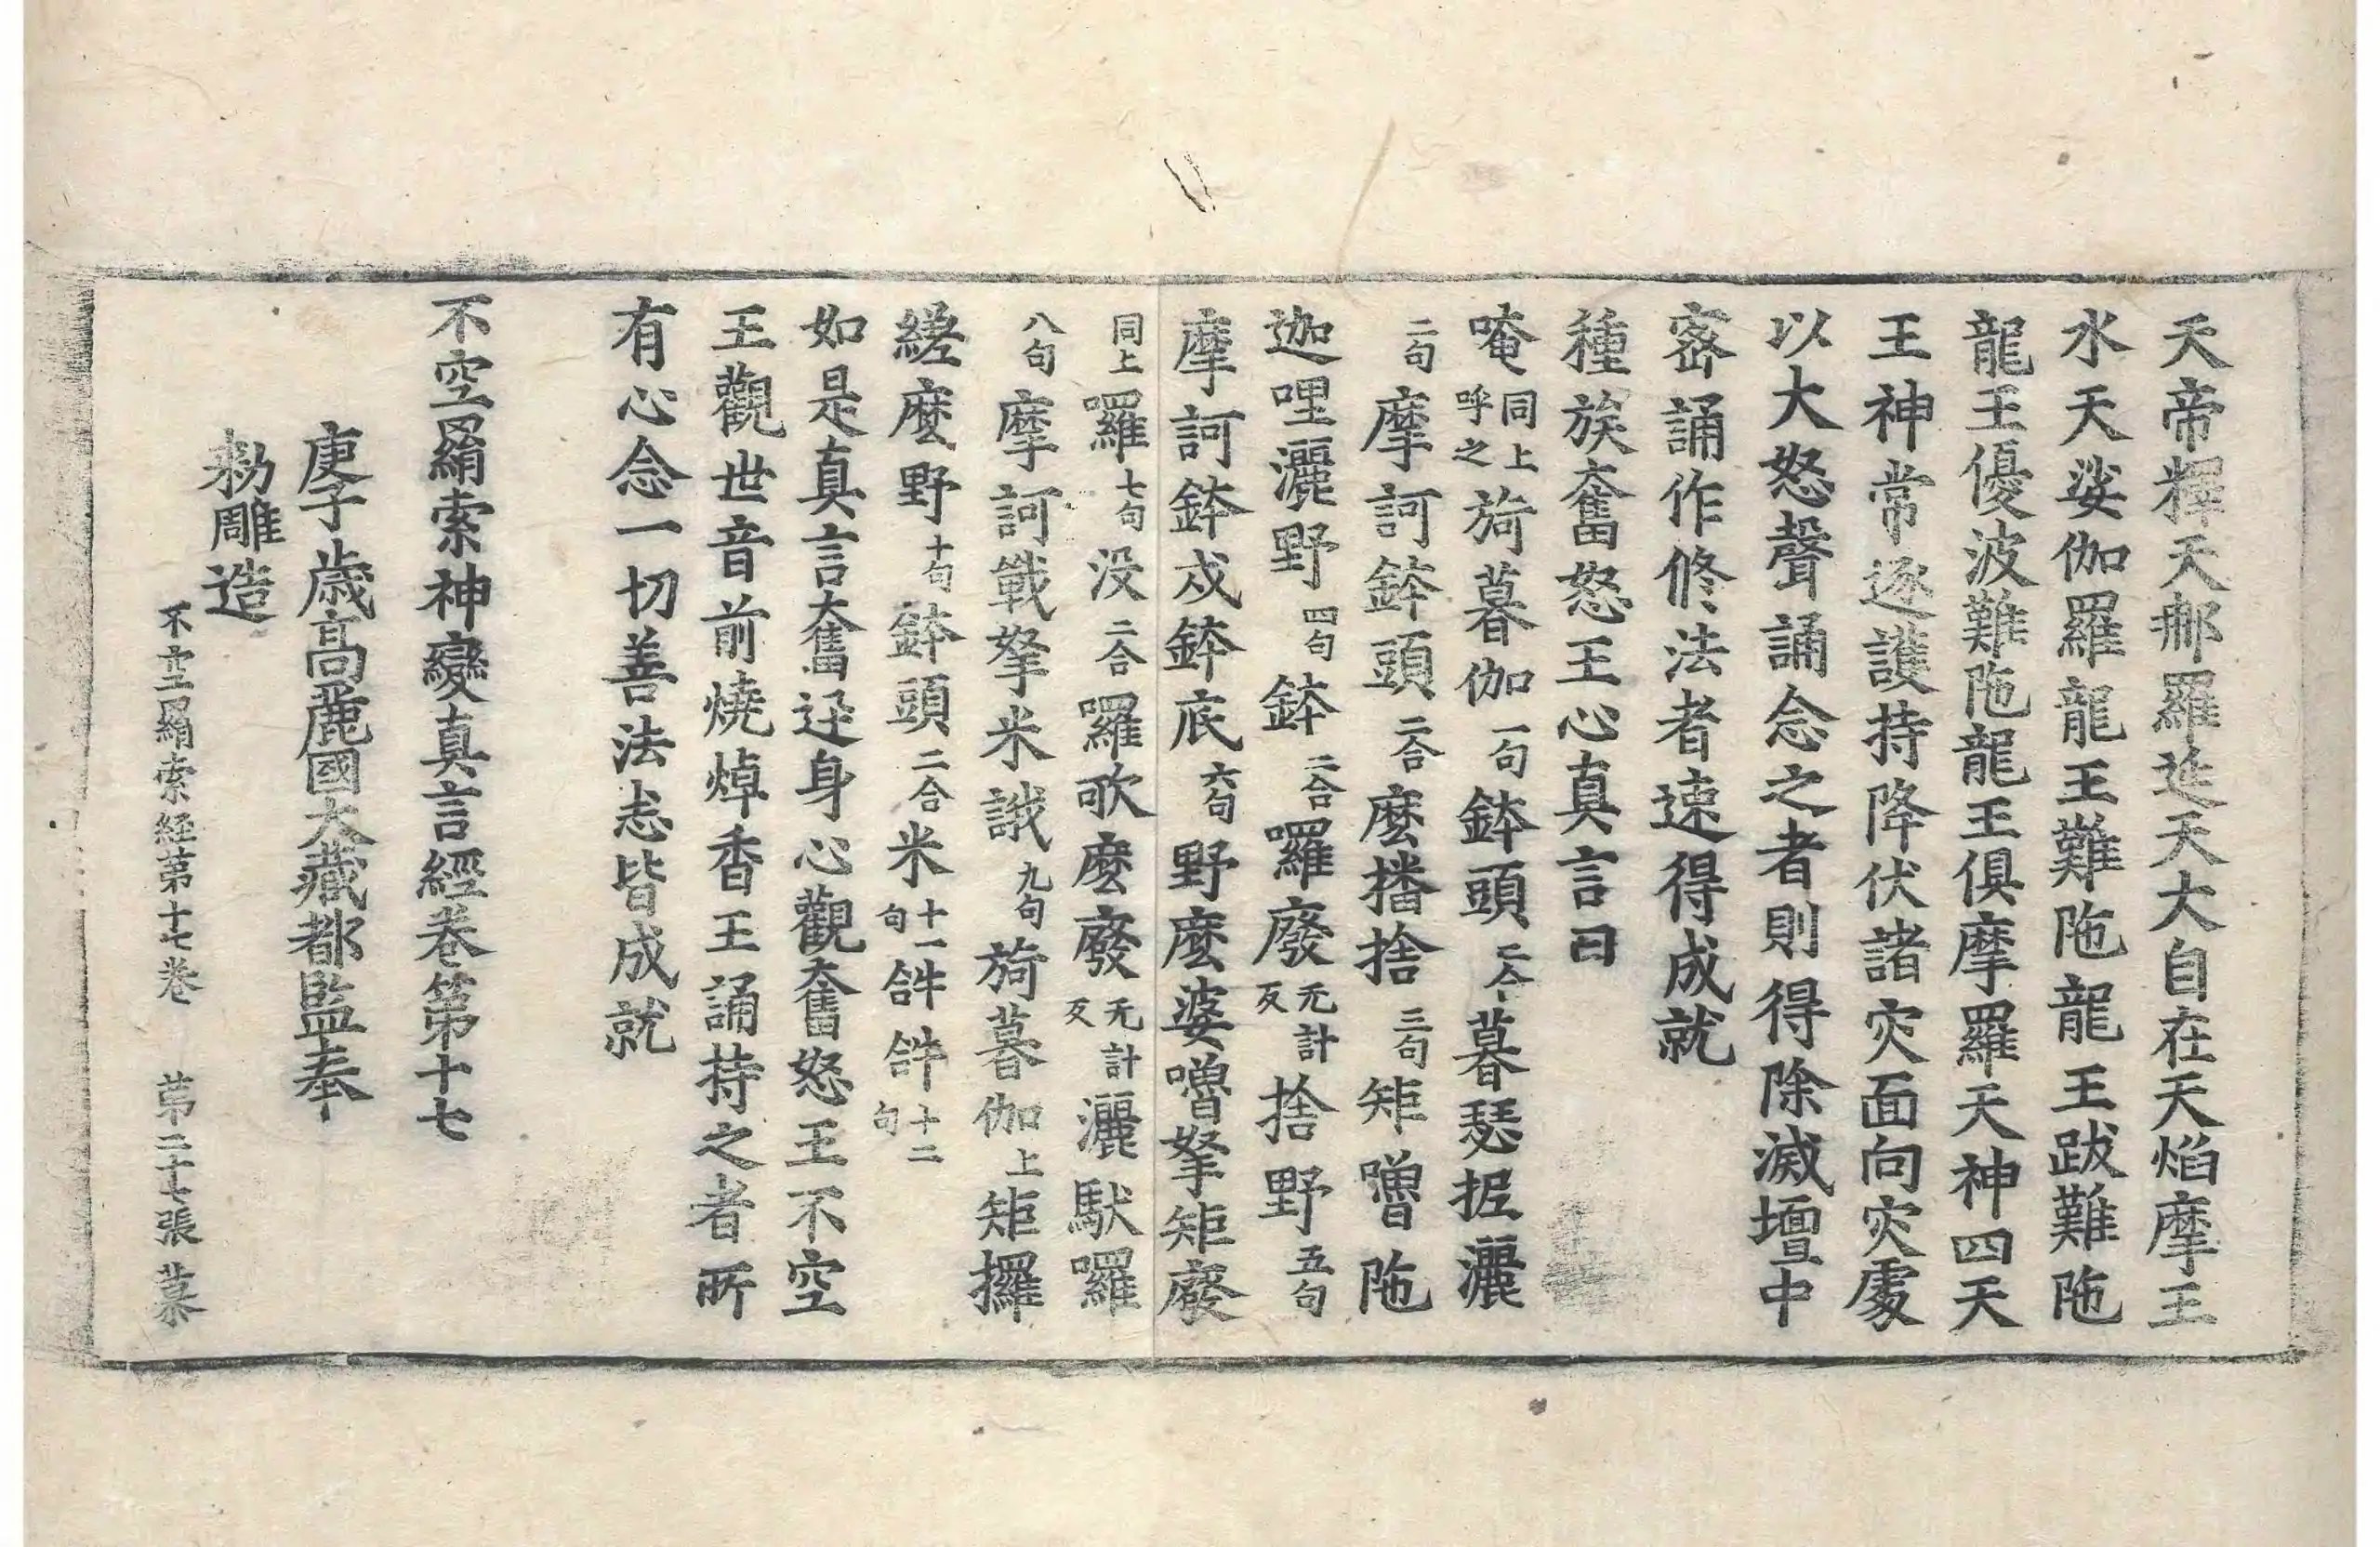 天帝釋天郍羅延天大自在天焰摩王
水天娑伽羅龍王難陁龍王跋難陁
龍王優波難陁龍王俱摩羅天神四天
王神常逐護持降伏諸灾面向灾處
以大怒聲誦念之者則得除滅壇中
密誦作修法者速得成就
種族奮怒王心真言曰
唵同上呼之旖暮伽一句鉢頭二合暮瑟抳灑
二句摩訶鉢頭二合麽播捨三句矩嚕陁
迦哩灑野四句鉢二合囉廢无計反捨野五句
摩訶鉢戍鉢底六句野麽婆嚕拏矩廢
同上囉七句没二合囉歌麽廢无計反灑馱囉
八句摩訶戰拏米誐九句旖暮伽上矩攞
縒麽野十句鉢頭二合米十一句𤙖𤙖十二句
如是真言奮迅身心觀奮怒王不空
王觀世音前燒焯香王誦持之者所
有心念一切善法志皆成就
不空羂索神變真言經卷第十七
庚子歲高麗國大藏都監奉
勑雕造
不空羂索経第十七卷 第二十七張 慕